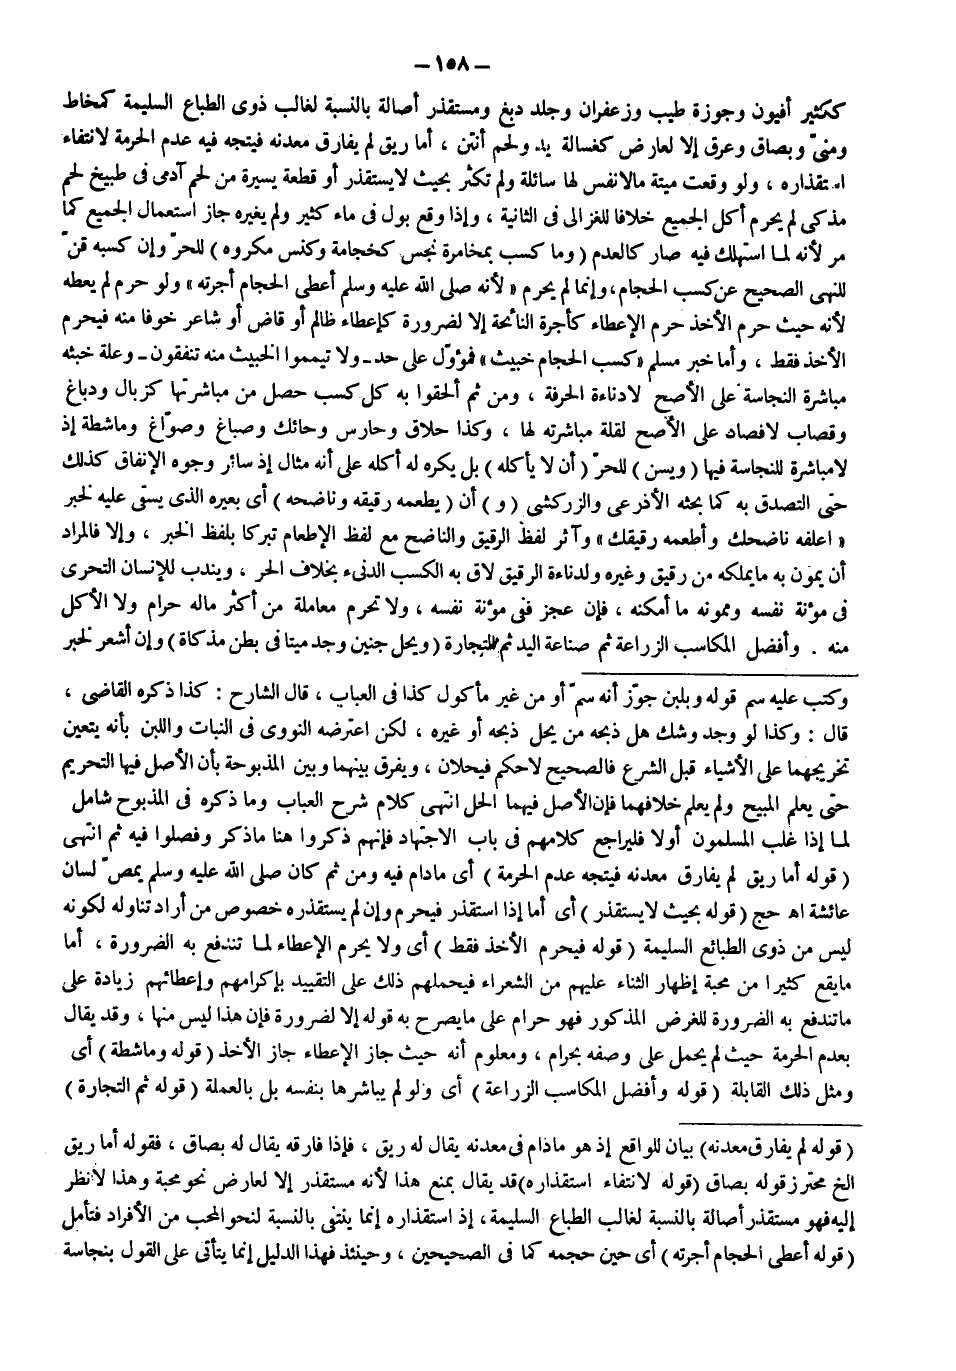 – ١٥٨ –
ككثير أفيون وجوزة طيب وزعفران وجلد دبغ ومستقذر أصالة بالنسبة لغالب ذوى الطباع السليمة كمخاط
ومنىّ وبصاق وعرق إلا لعارض كغسالة يد ولحم أنتن ، أما ريق لم يفارق معدنه فيتجه فيه عدم الحرمة لانتفاء
استقذاره ، ولو وقعت ميتة مالانفس لها سائلة ولم تكثر بحيث لايستقذر أو قطعة يسيرة من لحم آدمى فى طبيخ لحم
مذكى لم يحرم أكل الجميع خلافا للغزالى فى الثانية ، وإذا وقع بول فى ماء كثير ولم يغيره جاز استعمال الجميع كما
مر لأنه لما استهلك فيه صار كالعدم ( وما كسب بمخامرة نجس كحجامة وكنس مكروه ) للحرّ وإن كسبه قنّ
للنهى الصحيح عن كسب الحجام، وإنما لم يحرم « لأنه صلى الله عليه وسلم أعطى الحجام أجرته » ولو حرم لم يعطه
لأنه حيث حرم الأخذ حرم الإعطاء كأجرة النائحة إلا لضرورة كإعطاء ظالم أو قاض أو شاعر خوفا منه فيحرم
الأخذ فقط ، وأما خبر مسلم «كسب الحجام خبيث» فمؤوّل على حد ــ ولا تيمموا الخبيث منه تنفقون ــ وعلة خبثه
مباشرة النجاسة على الأصح لادناءة الحرفة ، ومن ثم ألحقوا به كل كسب حصل من مباشرتها كزبال ودباغ
وقصاب لافصاد على الأصح لقلة مباشرته لها ، وكذا حلاق وحارس وحائك وصباغ وصوّاغ وماشطة إذ
لامباشرة للنجاسة فيها ( ويسن ) للحرّ ( أن لا يأكله ) بل يكره له أكله على أنه مثال إذ سائر وجوه الإنفاق كذلك
حتى التصدق به كما بحثه الأذرعى والزركشى ( و ) أن ( يطعمه رقيقه وناضحه ) أى بعيره الذى يسقى عليه لخبر
« اعلفه ناضحك وأطعمه رقيقك » وآثر لفظ الرقيق والناضح مع لفظ الإطعام تبركا بلفظ الخبر ، وإلا فالمراد
أن يمون به مايملكه من رقيق وغيره ولدناءة الرقيق لاق به الكسب الدنىء بخلاف الحر ، ويندب للإنسان التحرى
فى مؤنة نفسه وممونه ما أمكنه ، فإن عجز ففى مؤنة نفسه ، ولا تحرم معاملة من أكثر ماله حرام ولا الأكل
منه . وأفضل المكاسب الزراعة ثم صناعة اليد ثم التجارة ( ويحل جنين وجد ميتا فى بطن مذكاة ) وإن أشعر لخبر
وكتب عليه سم قوله وبلبن جوّز أنه سمّ أو من غير مأكول كذا فى العباب ، قال الشارح : كذا ذكره القاضى ،
قال : وكذا لو وجد وشك هل ذبحه من يحل ذبحه أو غيره ، لكن اعترضه النووى فى النبات واللبن بأنه يتعين
تخريجهما على الأشياء قبل الشرع فالصحيح لاحكم فيحلان ، ويفرق بينهما وبين المذبوحة بأن الأصل فيها التحريم
حتى يعلم المبيح ولم يعلم خلافهما فإن الأصل فيهما الحل انتهى كلام شرح العباب وما ذكره فى المذبوح شامل
لما إذا غلب المسلمون أولا فليراجع كلامهم فى باب الاجتهاد فإنهم ذكروا هنا ماذكر وفصلوا فيه ثم انتهى
( قوله أما ريق لم يفارق معدنه فيتجه عدم الحرمة ) أى مادام فيه ومن ثم كان صلى الله عليه وسلم يمصّ لسان
عائشة اه حج ( قوله بحيث لايستقذر ) أى أما إذا استقذر فيحرم وإن لم يستقذره خصوص من أراد تناوله لكونه
ليس من ذوى الطبائع السليمة ( قوله فيحرم الأخذ فقط ) أى ولا يحرم الإعطاء لما تندفع به الضرورة ، أما
مايقع كثيرا من محبة إظهار الثناء عليهم من الشعراء فيحملهم ذلك على التقييد بإكرامهم وإعطائهم زيادة على
ماتندفع به الضرورة للغرض المذكور فهو حرام على مايصرح به قوله إلا لضرورة فإن هذا ليس منها ، وقد يقال
بعدم الحرمة حيث لم يحمل على وصفه بحرام ، ومعلوم أنه حيث جاز الإعطاء جاز الأخذ ( قوله وماشطة ) أى
ومثل ذلك القابلة ( قوله وأفضل المكاسب الزراعة ) أى ولو لم يباشرها بنفسه بل بالعملة ( قوله ثم التجارة )
( قوله لم يفارق معدنه) بيان للواقع إذ هو مادام فى معدنه يقال له ريق ، فإذا فارقه يقال له بصاق ، فقوله أما ريق
الخ محترز قوله بصاق (قوله لانتفاء استقذاره)قد يقال بمنع هذا لأنه مستقذر إلا لعارض نحو محبة وهذا لانظر
إليه فهو مستقذر أصالة بالنسبة لغالب الطباع السليمة، إذ استقذاره إنما ينتفى بالنسبة لنحو المحب من الأفراد فتأمل
( قوله أعطى الحجام أجرته ) أى حين حجمه كما فى الصحيحين ، وحينئذ فهذا الدليل إنما يتأتى على القول بنجاسة